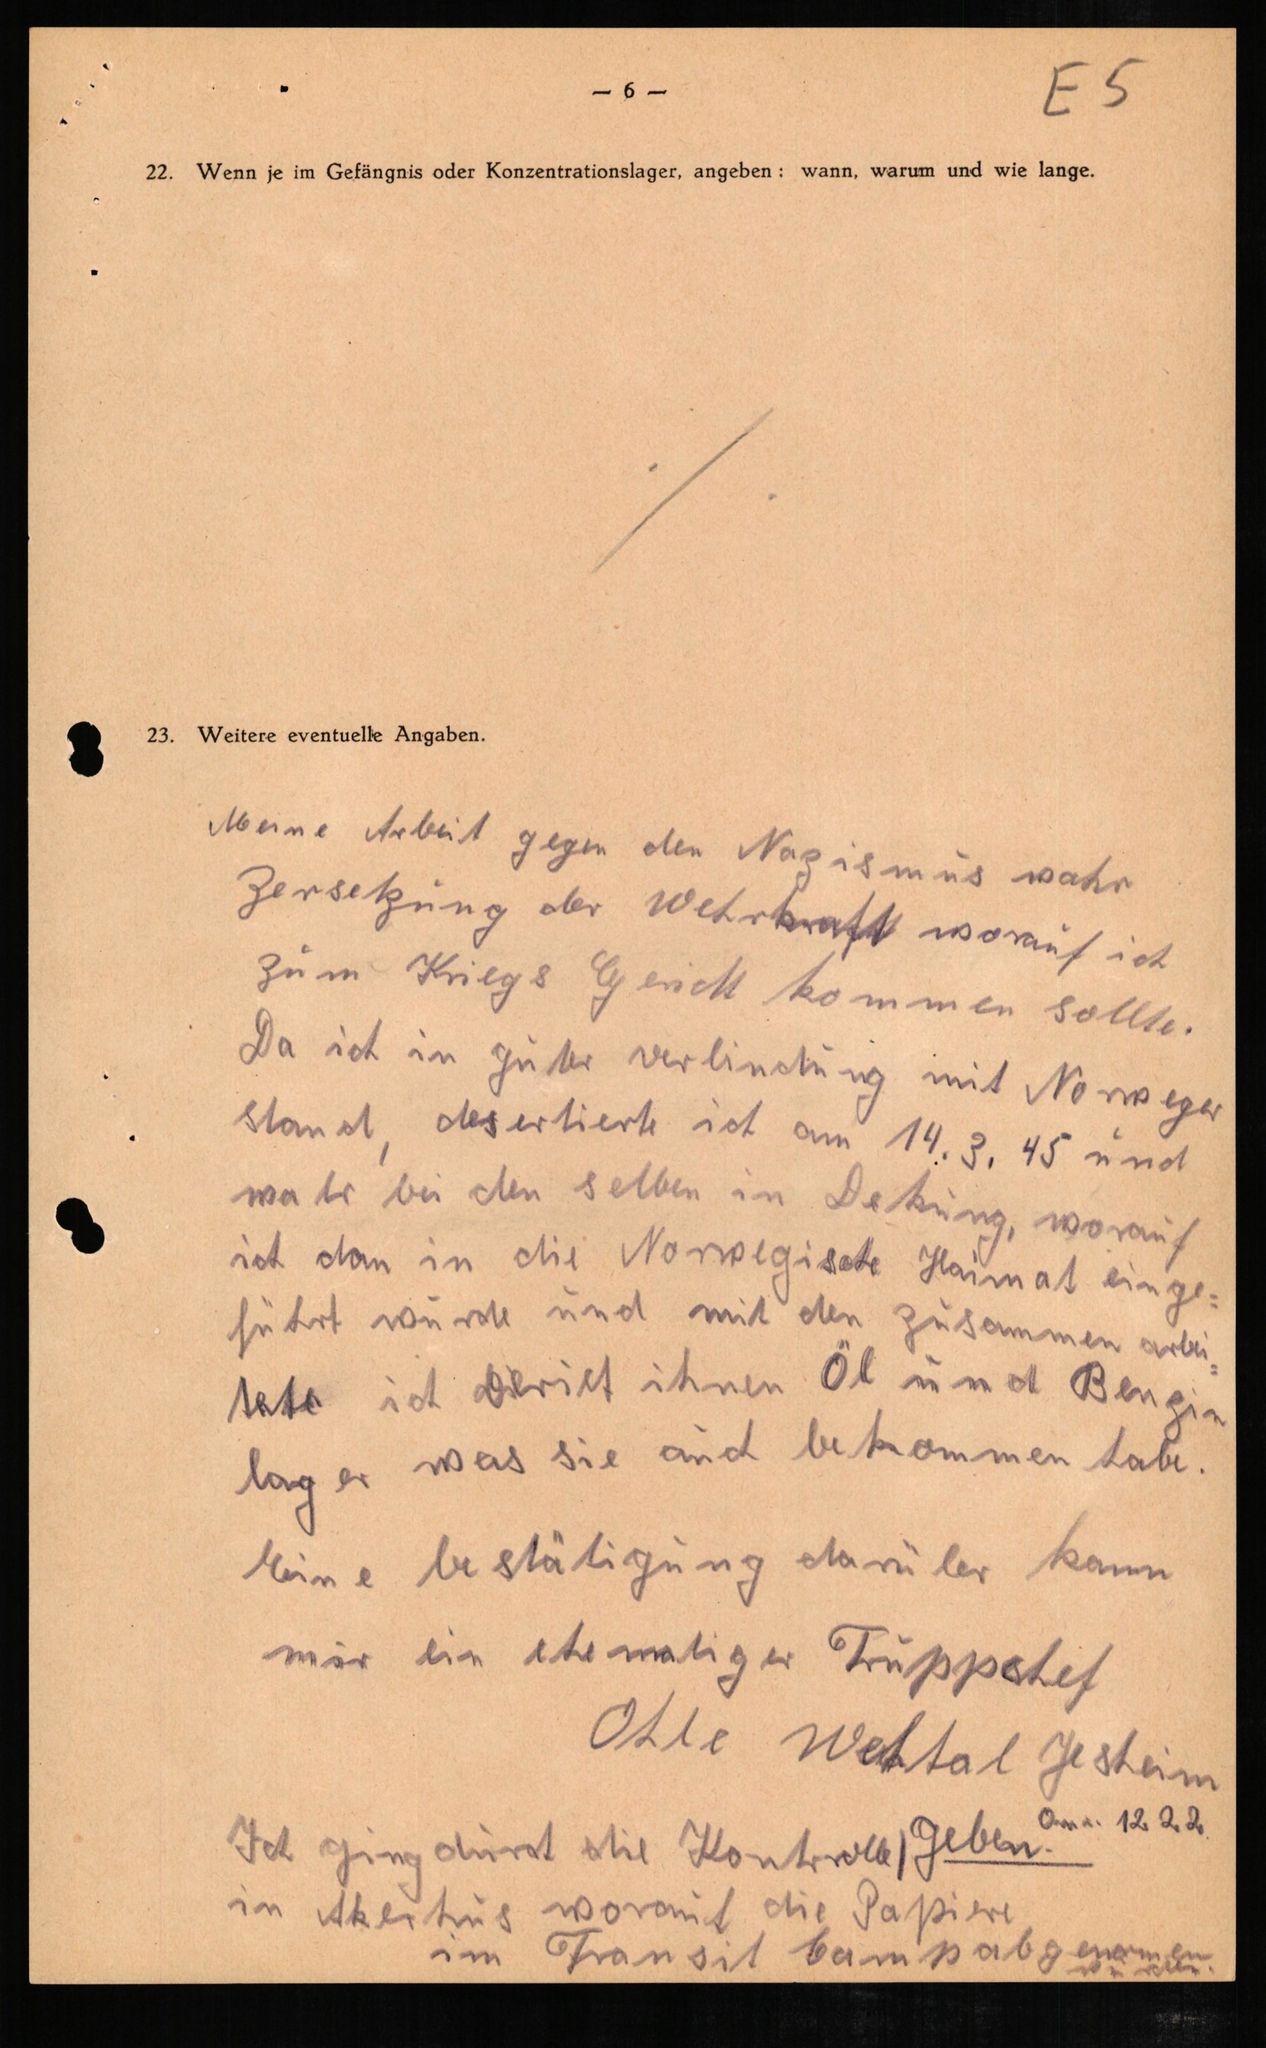 — 6 —
E 5
22. Wenn je im Gefängnis oder Konzentrationslager, angeben : wann, warum und wie lange.
23. Weitere eventuelle Angaben.
Meine Arbeit gegen den Nazismus wahr
Zersetzung der Wehrkraft worauf ich
zum Kriegs Gericht kommen sollte.
Da ich in guter verbindung mit Norweger
stand, desertierte ich am 14. 3. 45 und
wahr bei den selben in Dekung, worauf
ich dan in die Norwegische Haimat einge=
führt wurde und mit den zusammen arbei=
tete ich ihnen Öl und Benzin
lager was sie auch bekommen habe.
Eine bestätigung darüber kann
mir ein ehemaliger Truppchef
Ohle Wehtal Jesheim
geben. 12. 2. 2.
Ich ging durch die Kontrolle
in Akerhus worauf die Papiere
im Transit Camp abgenomen
wurden.